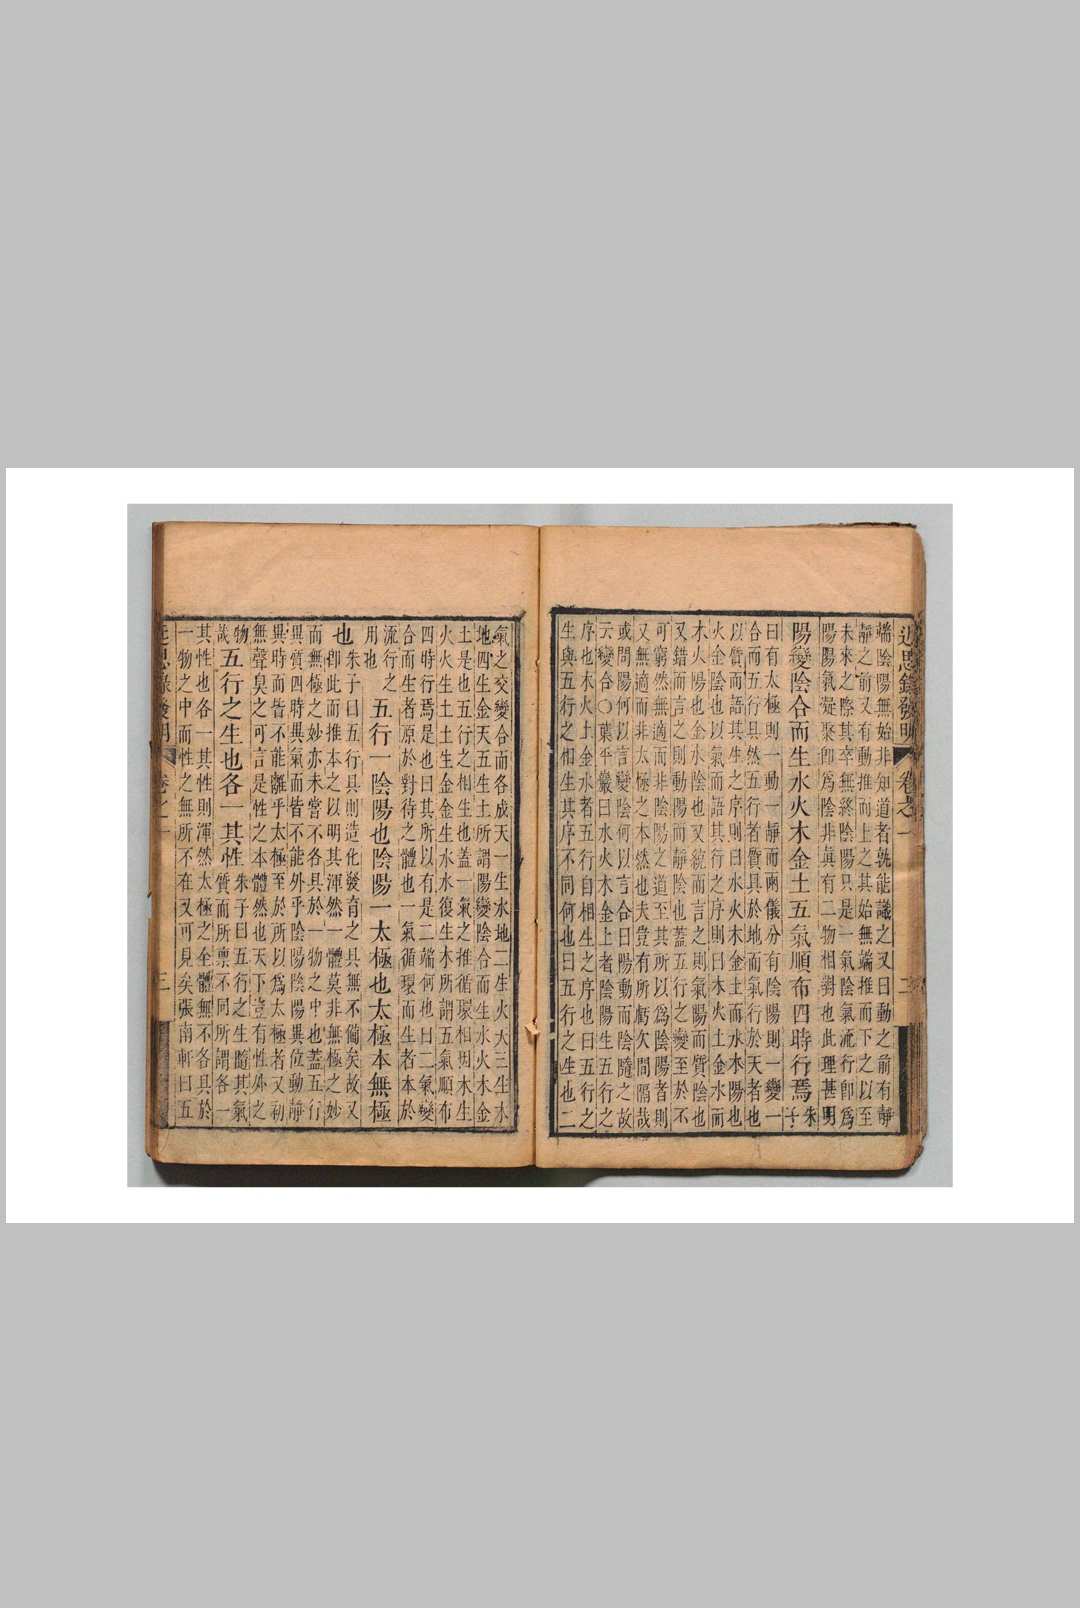 近思錄發明 卷之一 二
端陰陽無始非知道者孰能識之又曰動之前有靜
靜之前又有動推而上之其始無端推而下之以至
未來之際其卒無終陰陽只是一氣陰氣流行即爲
陽陽氣凝聚卽爲陰非眞有二物相對也此理甚明
陽變陰合而生水火木金土五氣順布四時行焉 朱子
曰有太極則一動一靜而兩儀分有陰陽則一變一
合而五行具然五行者質具於地而氣行於天者也
以質而語其生之序則曰水火木金土而水木陽也
火金陰也以氣而語其行之序則曰木火土金水而
木火陽也金水陰也又統而言之則氣陽而質陰也
又錯而言之則動陽而靜陰也蓋五行之變至於不
可窮然無適而非陰陽之道至其所以爲陰陽者則
又無適而非太極之本然也夫豈有所虧欠間隔哉
或問陽何以言變陰何以言合曰陽動而陰隨之故
云變合〇葉平巖曰水火木金土者陰陽生五行之
序也木火土金水者五行自相生之序也曰五行之
生與五行之相生其序不同何也曰五行之生也二
氣之交變合而各成天一生水地二生火天三生木
地四生金天五生土所謂陽變陰合而生水火木金
土是也五行之相生也蓋一氣之推循環相因木生
火火生土土生金金生水水復生木所謂五氣順布
四時行焉是也曰其所以有是二端何也曰二氣變
合而生者原於對待之體也一氣循環而生者本於
流行之
用也 五行一陰陽也陰陽一太極也太極本無極
也 朱子曰五行具則造化發育之具無不備矣故又
卽此而推本之以明其渾然一體莫非無極之妙
而無極之妙亦未嘗不各具於一物之中也蓋五行
異質四時異氣而皆不能外乎陰陽陰陽異位動靜
異時而皆不能離乎太極至於所以爲太極者又初
無聲臭之可言是性之本體然也天下豈有性外之
物
哉 五行之生也各一其性 朱子曰五行之生隨其氣
質而所稟不同所謂各一
其性也各一其性則渾然太極之全體無不各具於
一物之中而性之無所不在又可見矣張南軒曰五
近思錄發明 卷之一 三